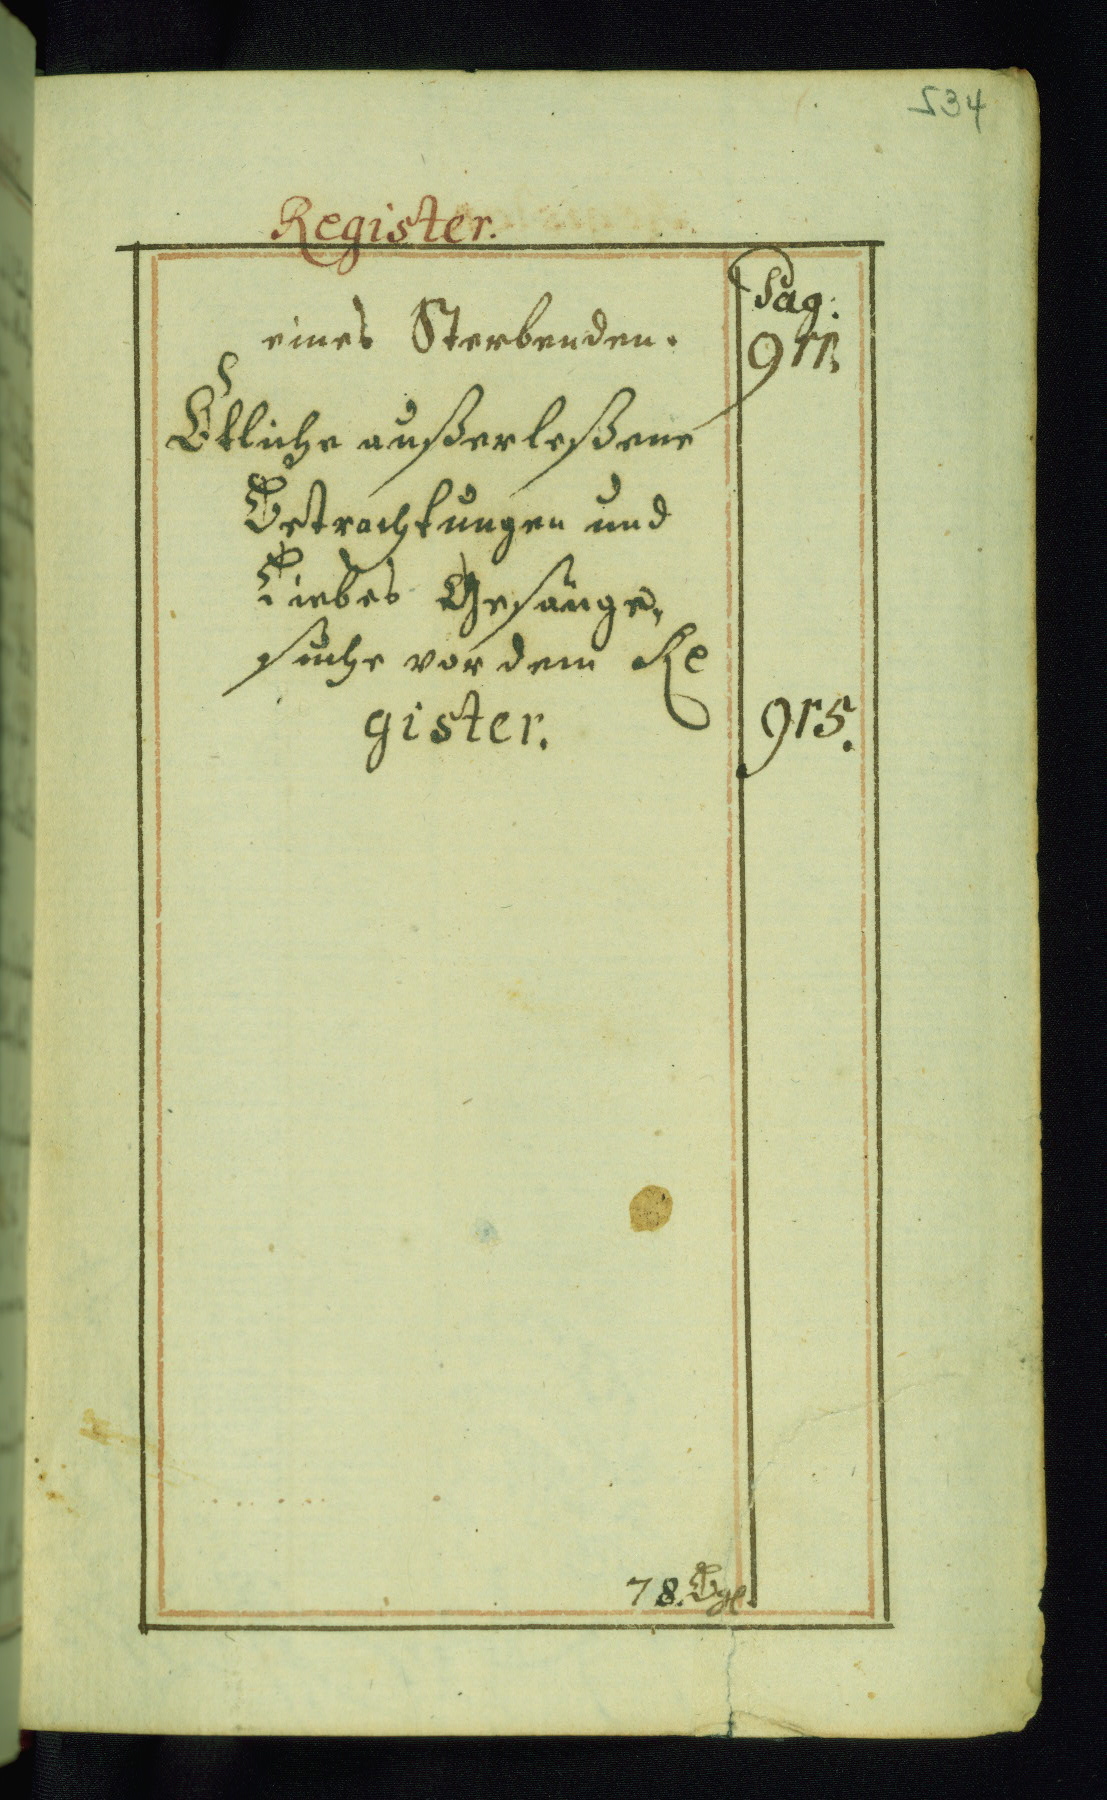 534
Register.
Pag:
eines Sterbenden. 911.
Etliche außerleßene
Betrachtungen und
Liebes Gesänge,
suche vor dem Re
gister. 915.
78. Bg.